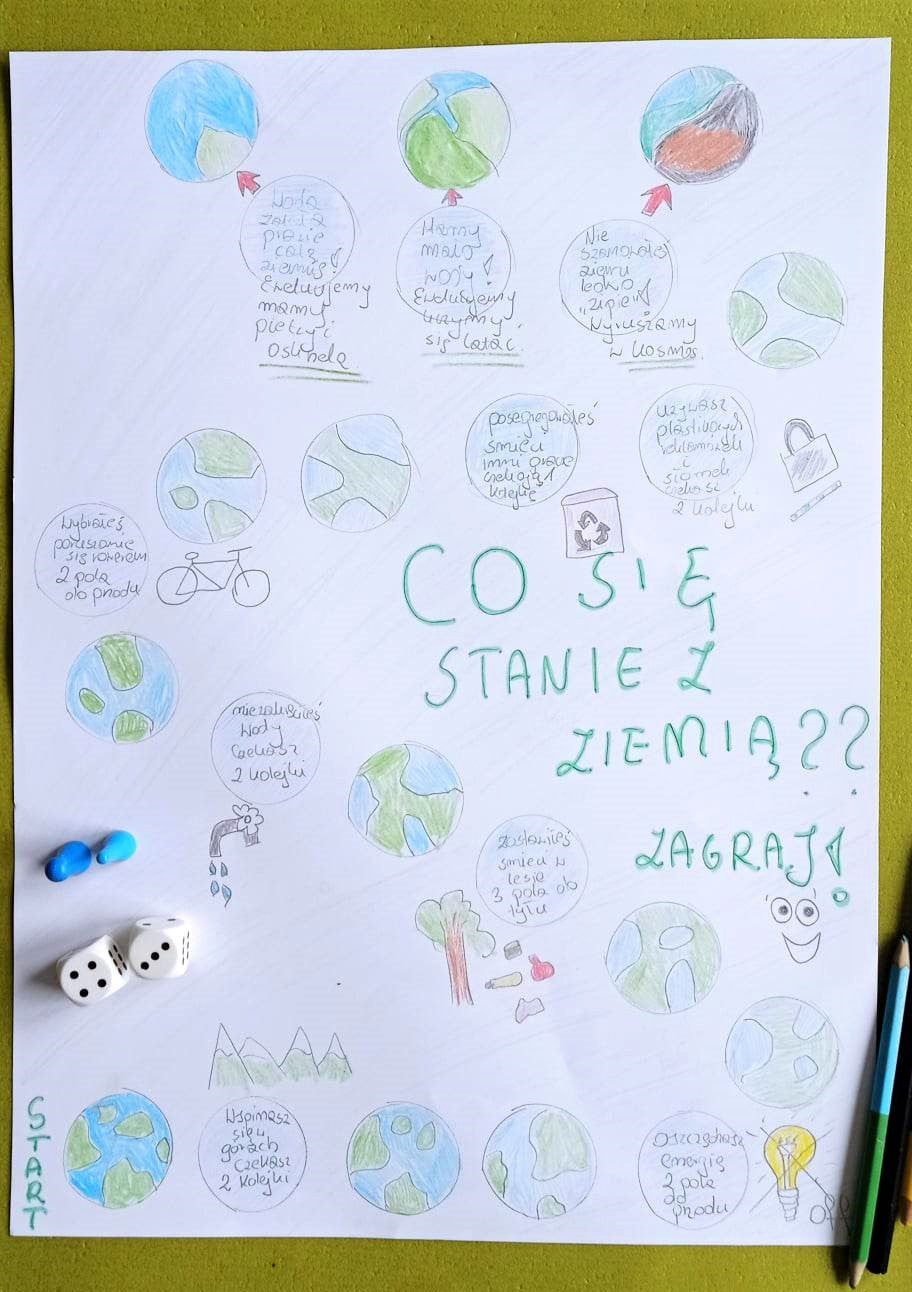 Woda
zalała
prawie
całą
ziemię!
Ewoluujemy
mamy
płetwy i
oskrzela
Mamy
mało
wody!
Ewoluujemy
uczymy
się latać.
Nie
szanowałeś
ziemi
lecko
Wyruszamy
w kosmos.
posegregowałeś
śmieci
inni gracze
czekają 1
kolejkę
używasz
plastikowych
reklamówek
i
słomek
czekasz
2 kolejki
Wybrałeś
poruszanie
się rowerem
2 pola
do przodu
CO SIĘ
STANIE Z
ZIEMIĄ??
ZAGRAJ!
niezakręciłeś
wody
czekasz
2 kolejki
zostawiłeś
śmieci w
lesie
3 pola do
tyłu
START
Wspinasz
się w
górach
czekasz
2 kolejki
Oszczędzasz
energię
2 pola
do
przodu
OFF